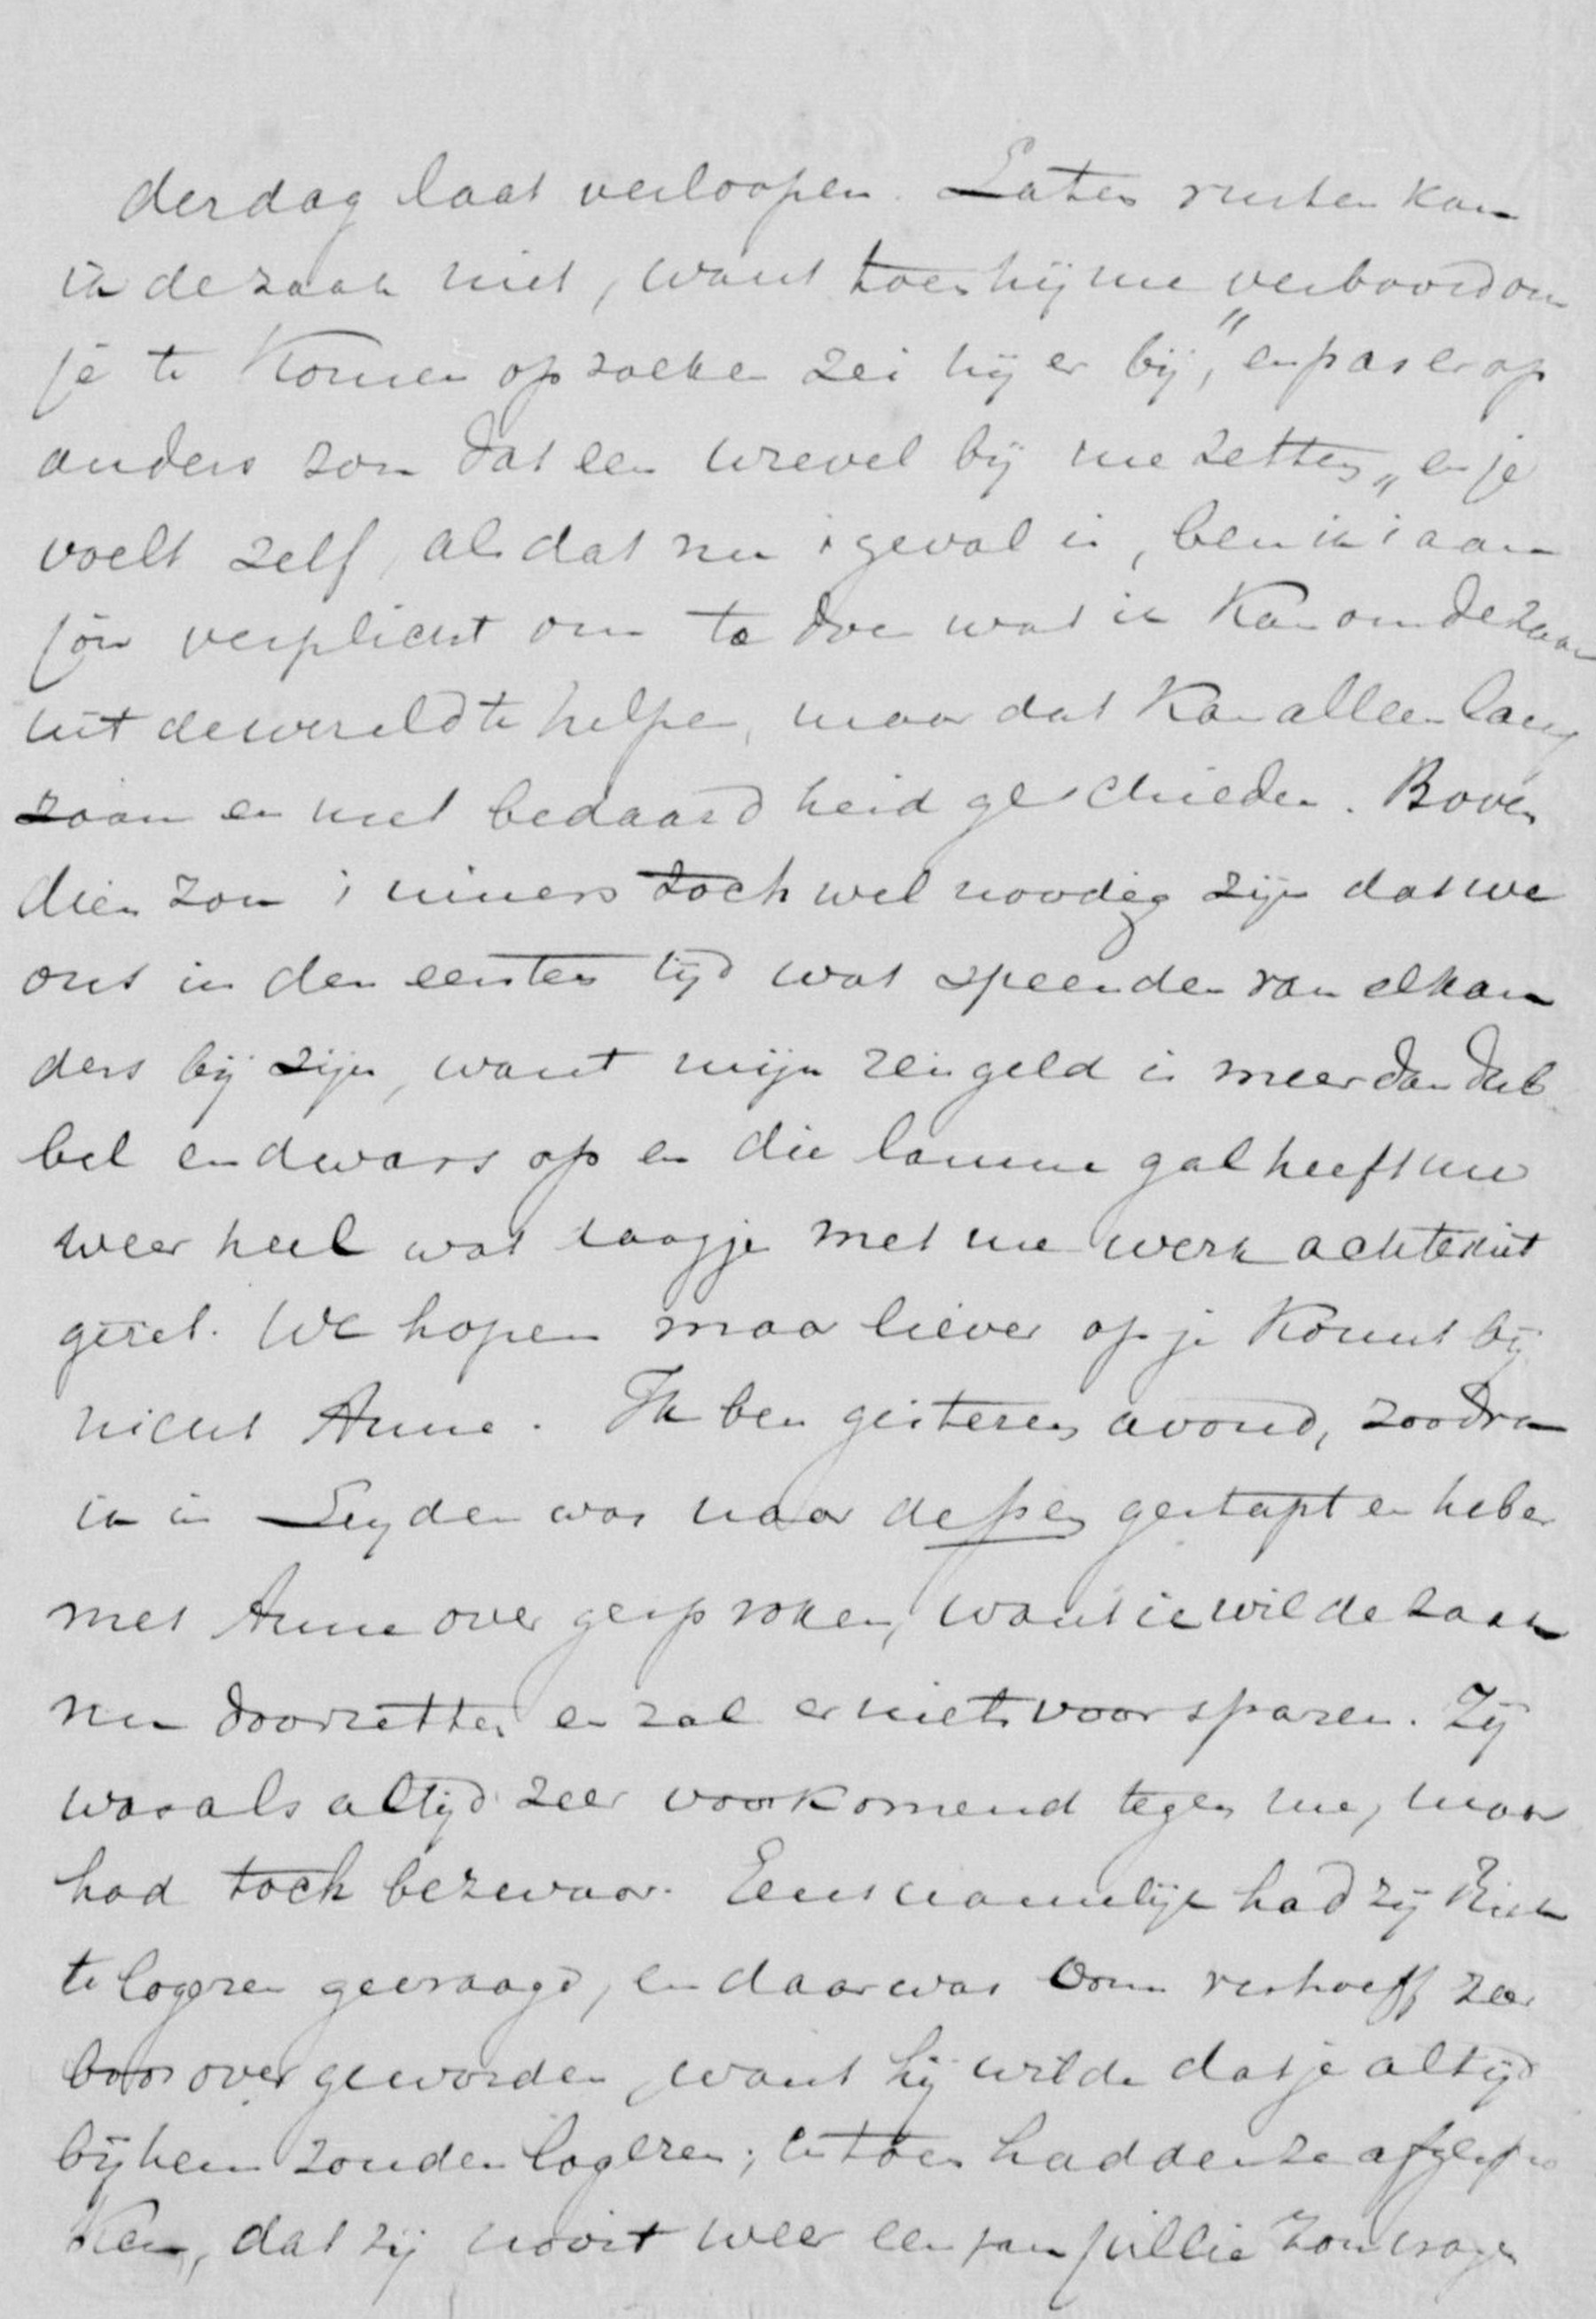 derdag laat verloopen. Laten rusten kan
ik de zaak niet, want toen hij me verbood om
je te komen opzoeken zei hij er bij, "en pas er op
anders zou dat een wrevel bij me zetten" en je
voelt zelf, als dat nu 't geval is, ben ik 't aan
jou verplicht om te doen wat ik kan om de zaak
uit de wereld te helpen, maar dat kan alleen lang
zaam en met bedaardheid geschieden. Boven
dien zou 't immers toch wel noodig zijn dat we
ons in den eersten tijd wat speenden van elkan
ders bij zijn, want mijn reisgeld is meer dan dub
bel en dwars op en die lamme gal heeft me
weer heel wat daagje met me werk achteruit
gezet. We hopen maar liever op je komst bij
nicht Anne. Ik ben gisteren avond, zoodra
ik in Leyden was naar gestapt en heb er
met Anne over gesproken, want ik wil de zaak
nu doorzetten en zal er niets voor sparen. Zij
was als altijd zeer voorkomend tegen me, maar
had toch bezwaar. Eens namelijk had zij Riek
te logeren gevraagd, en daar was Oom Verhoeff zeer
boos over geworden, want hij wilde dat je altijd
bij hem zouden logeren; en toen hadden ze afgespro
ken, dat zij nooit weer een van jullie zou vragen